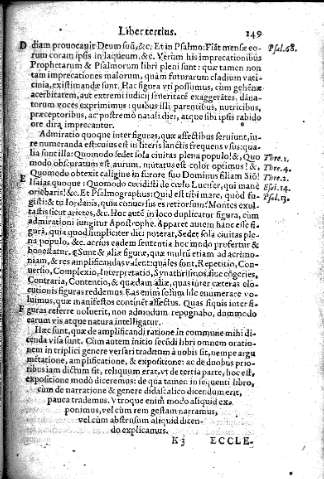 Liber tertius. 149
D diam prouocauit Deum suũ, &c. Et in Psalmo: Fiãt mensæ eo- Psal. 68.
rum coram ipsis in laqueum, &c. Verum his imprecationibus
Prophetarum & Psalmorum libri pleni sunt: quæ tamen non
tam imprecationes malorum, quàm futurarum cladium vati-
cinia, existimandæ sunt. Hac figura vti possimus, cùm gehẽnæ
acerbitatem, aut extremi iudicij seueritatẽ exaggerãtes, dãna-
torum voces exprimimus: quibus illi parentibus, nutricibus,
præceptoribus, ac postremò natali diei, atque sibi ipsis rabido
ore dira imprecantur.
Admiratio quoque inter figuras, quæ affectibus seruiunt, iu-
re numeranda est: cuius est in literis sanctis frequens vsus: qua-
lia sunt illa: Quomodo sedet sola ciuitas plena populo? &, Quo Thre. 1.
modo obscuratum est aurum, mutatus est color optimus? &, Thre. 4.
E Quomodo obtexit caligine in furore suo Dominus filiam Siõ? Thre. 2.
Isaias quoque: Quomodo cecidisti de cælo Lucifer, qui manè Esai. 14.
oriebaris? &c. Et Psalmographus: Quid est tibi mare, quòd fu- Psal. 113.
gisti: & tu Iordanis, quia conuersus es retrorsum? Montes exul-
tastis sicut arietes, &c. Hoc autẽ in loco duplicatur figura, cùm
admirationi iungitur Apostrophe. Apparet autem hanc esse fi-
gurã, quia quod simpliciter dici poterat, Sedet sola ciuitas ple-
na populo, &c. acrius eadem sententia hoc modo profertur &
honestatur. Sunt & aliæ figuræ, quæ multũ etiam ad acrimo-
niam, & res amplificandas valent: quales sunt, Repetitio, Con-
uersio, Complexio, Interpretatio, Synathrismos siue cõgeries,
Contraria, Contentio, & quædam aliæ, quas inter cæteras elo-
cutionis figuras reddemus. Eas enim solùm hîc enumerare vo-
luimus, quæ manifestos continẽt affectus. Quas siquis inter fi-
F guras referre voluerit, non admodum repugnabo, dummodo
earum vis atque natura intelligatur.
Hæc sunt, quæ de amplificandi ratione in commune mihi di-
cenda visa sunt. Cùm autem initio secũdi libri omnem oratio-
nem in triplici genere versari tradendũ à nobis sit, nempe argu
mẽtatione, amplificatione, & expositione: ac de duobus prio-
ribus iam dictum sit, reliquum erat, vt de tertia parte, hoc est,
expositione modò diceremus: de qua tamen in sequenti libro,
cùm de narratione & genere didascalico dicendum erit,
pauca trademus. Vtroque enim modo aliquid ex-
ponimus, vel cùm rem gestam narramus,
vel cùm abstrusum aliquid dicen-
do explicamus.
K 3 ECCLE-